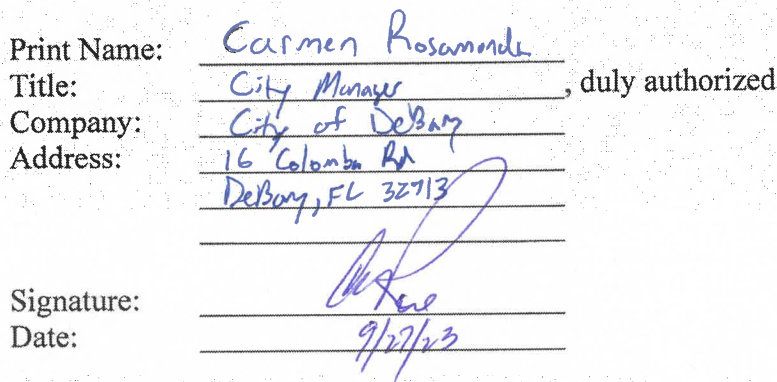 Print Name: Carmen Rosamonda
Title: City Manager, duly authorized
Company: City of DeBary
Address: 16 Colomba Rd
DeBary, FL 32713
Signature:
Date: 9/27/23